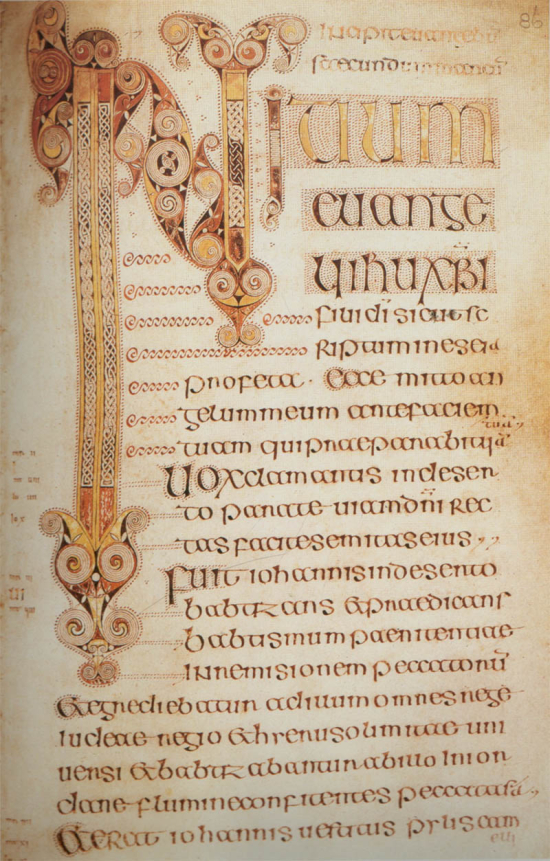 86
INITIUM
euange
lii ihu xpi
fili di sicut sc
riptum in eseia
profeta · Ecce mitto an
gelum meum ante faciem
tuam qui praeparabit uiā
tuā
Uox clamantis in deser
to parate uiam dn̄i rec
tas facite semitas eius
Fuit iohannis in deserto
babtizans & praedicans
babtismum paenitentiae
in remisionem peccatorū
& egrediebatur ad illum omnes
iudeae regio & hierusolimitae uni
uersi & babtizabantur ab illo in ior
dane flumine confitentes peccata sua
& erat iohannis uestitus pylis cam
elli